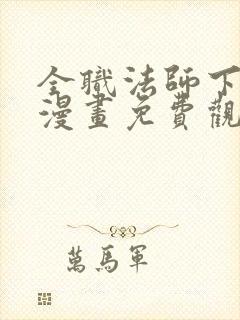 全職法師下
漫畫免費觀
萬馬軍